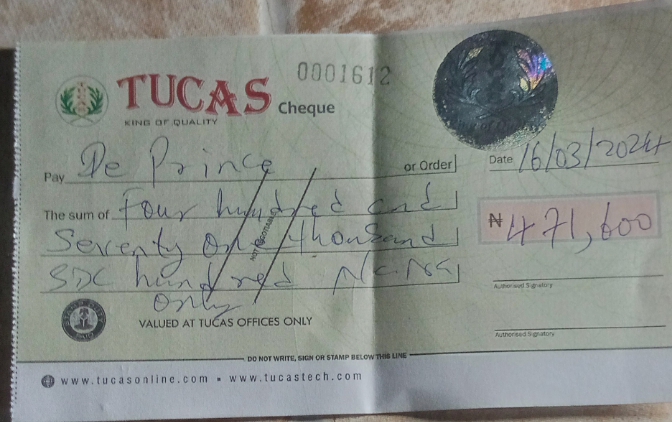 0001612
TUCAS Cheque
KING OF QUALITY
Pay De Prince or Order
Date 16/03/2024
The sum of Four hundred and
Seventy one thousand
Six hundred Naira
only
₦ 471,600
NOT NEGOTIABLE
Authorised Signatory
Authorised Signatory
VALUED AT TUCAS OFFICES ONLY
DO NOT WRITE, SIGN OR STAMP BELOW THIS LINE
www.tucasonline.com • www.tucastech.com